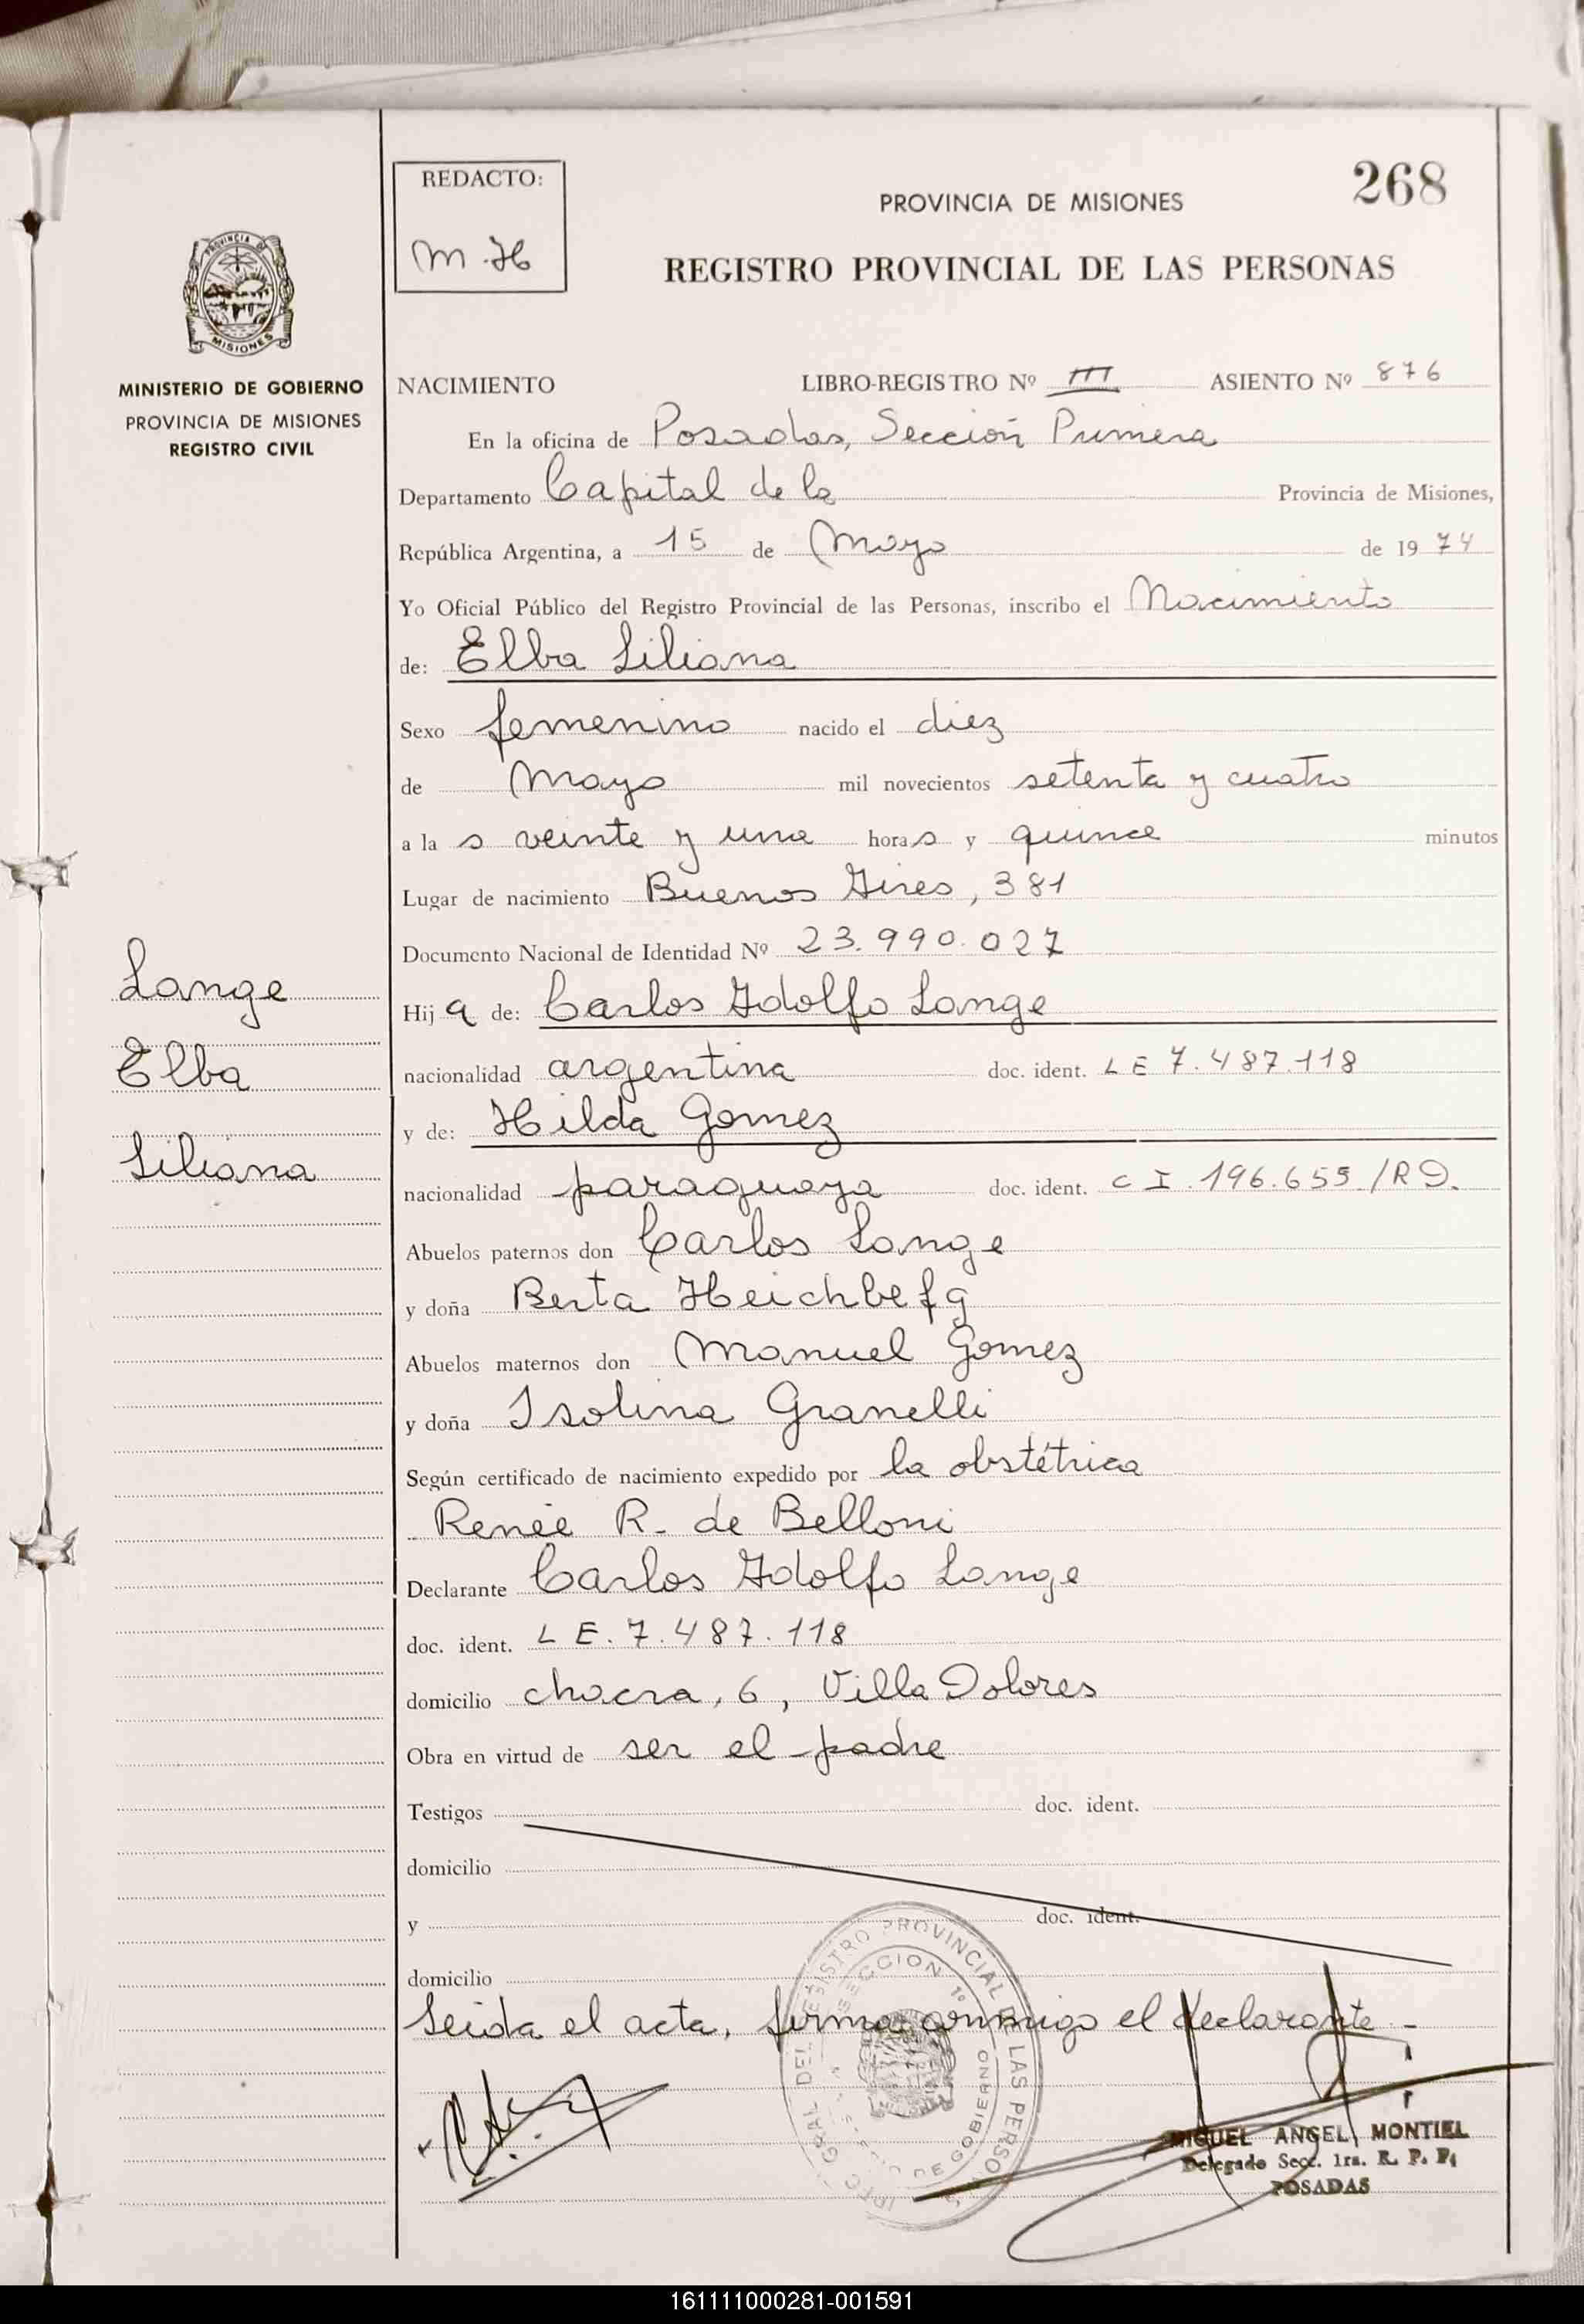 REDACTO:
M.H
268
PROVINCIA DE MISIONES
REGISTRO PROVINCIAL DE LAS PERSONAS
PROVINCIA DE
MISIONES
MINISTERIO DE GOBIERNO
PROVINCIA DE MISIONES
REGISTRO CIVIL
NACIMIENTO LIBRO-REGISTRO Nº III ASIENTO Nº 876
En la oficina de Posadas, Sección Primera
Departamento Capital de la Provincia de Misiones,
República Argentina, a 15 de Mayo de 1974
Yo Oficial Público del Registro Provincial de las Personas, inscribo el Nacimiento
de: Elba Liliana
Sexo femenino nacido el diez
de Mayo mil novecientos setenta y cuatro
a la s veinte y una horas y quince minutos
Lugar de nacimiento Buenos Aires, 381
Documento Nacional de Identidad Nº 23.990.027
Lange
Elba
Liliana
Hija de: Carlos Adolfo Lange
nacionalidad argentina doc. ident. LE 7.487.118
y de: Hilda Gomez
nacionalidad paraguaya doc. ident. C I .196.655/RD.
Abuelos paternos don Carlos Lange
y doña Berta
Abuelos maternos don Manuel Gomez
y doña Isolina Granelli
Según certificado de nacimiento expedido por la obstétrica
Renée R. de Belloni
Declarante Carlos Adolfo Lange
doc. ident. LE.7.487.118
domicilio chacra, 6, Villa Dolores
Obra en virtud de ser el padre
Testigos doc. ident.
domicilio
y doc. ident.
domicilio
Leida el acta, firma conmigo el declarante.-
REGISTRO PROVINCIAL DE LAS PERSONAS
SECCION 1º
DE GOBIERNO
MIGUEL ANGEL MONTIEL
Delegado Secc. 1ra. R. P. P.
POSADAS
161111000281-001591